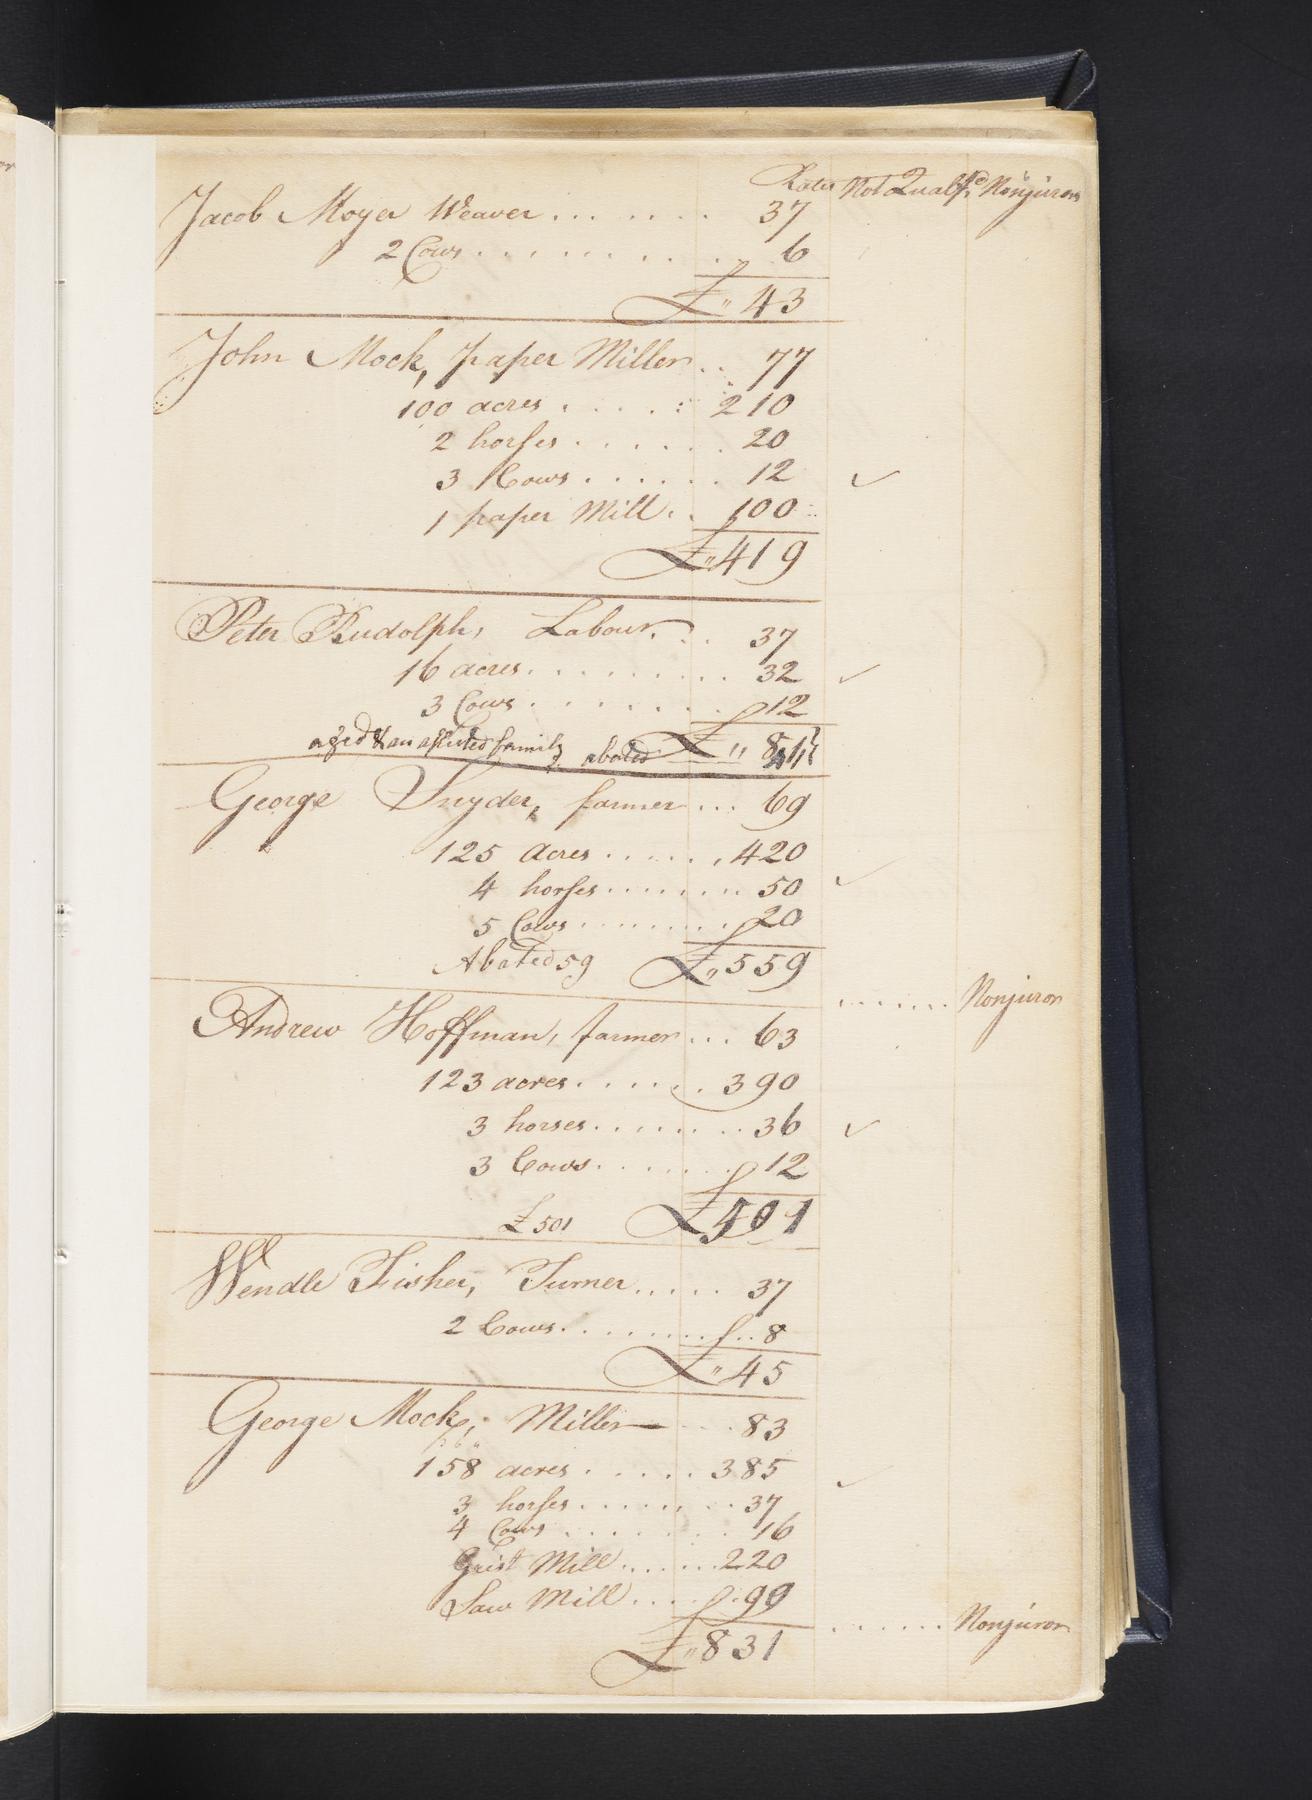 Rates Not Qualfd. Nonjuron
Jacob Moyer Weaver ....... 37
2 Cows .......... 6
£" 43
John Mock, paper Miller .. 77
100 acres ..... 210
2 horses ...... 20
3 Cows ...... 12 ✓
1 paper Mill .. 100
£" 419
Peter Rudolph, Labour. .. 37
16 acres ......... 32 ✓
3 Cows ........ 12
aged & an aflicted family abated £"
George Snyder, farmer ... 69
125 Acres ...... 420
4 horses ....... 50 ✓
5 Cows ........ 20
Abated 59 £" 559
....... Nonjuron
Andrew Hoffman, farmer ... 63
123 acres ...... 390
3 horses ....... 36 ✓
3 Cows ...... 12
£ 501 £ 501
Wendle Fisher, Turner ..... 37
2 Cows ......... 8
£" 45
George Mock, Miller — ... 83
158 acres ..... 385 ✓
3 horses ....... 37
4 Cows ....... 16
Grist Mill ...... 220
Saw Mill ..... 99
....... Nonjuron
£" 831